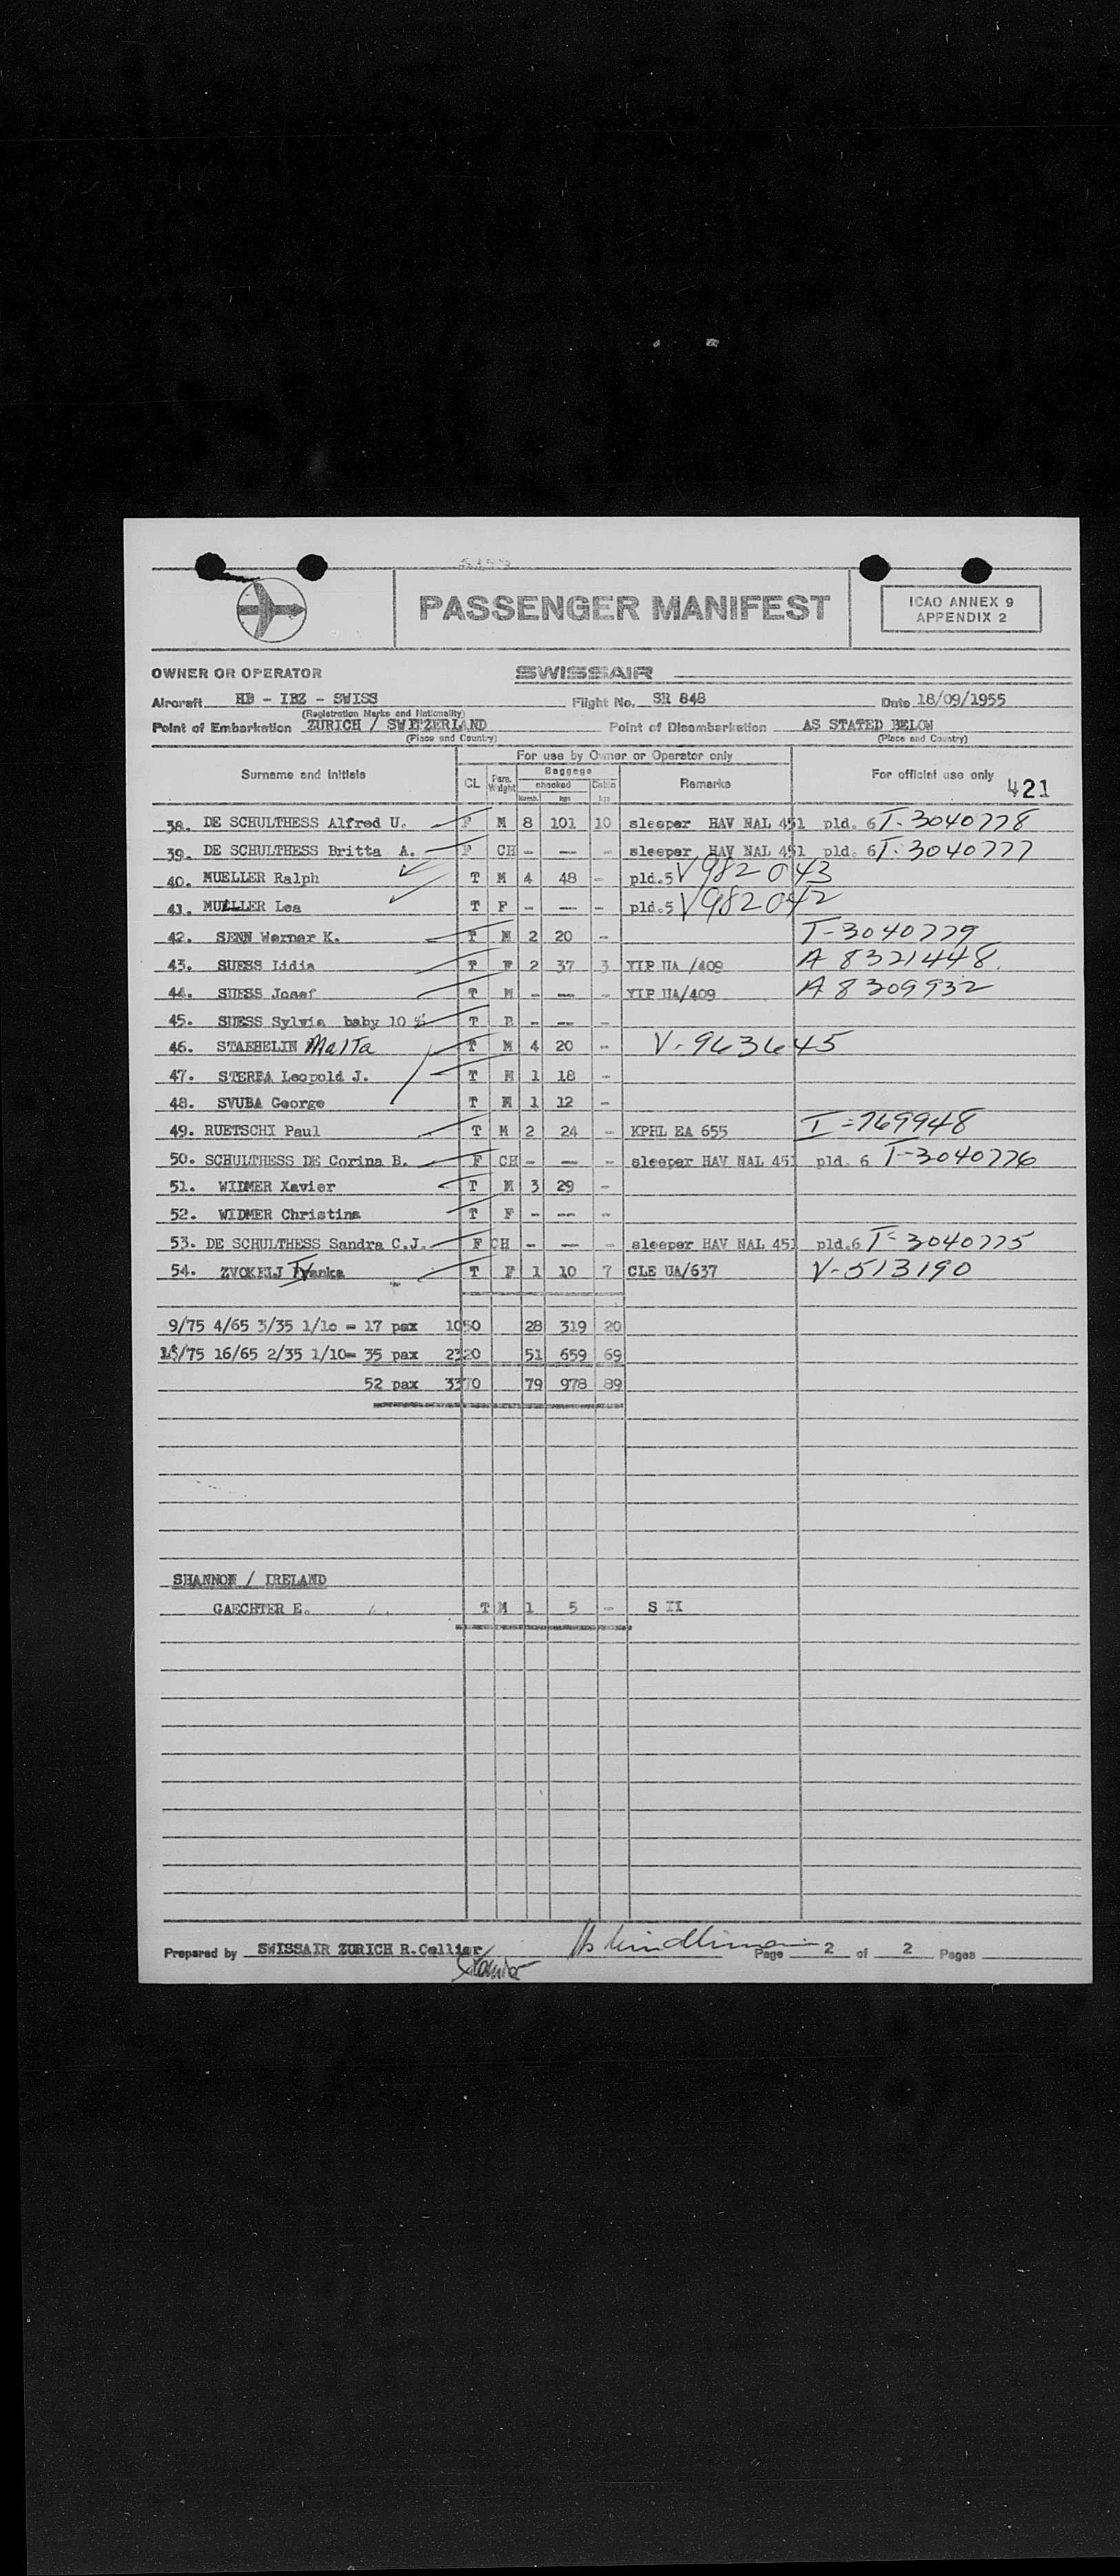 PASSENGER MANIFEST
ICAO ANNEX 9
APPENDIX 2
OWNER OR OPERATOR SWISSAIR
Aircraft HB - IBZ - SWISS Flight No. SR 848 Date 18/09/1955
(Registration Marks and Nationality)
Point of Embarkation ZURICH / SWITZERLAND Point of Disembarkation AS STATED BELOW
(Place and Country) (Place and Country)
For use by Owner or Operator only
Surname and initials CL Pass. Weight Baggage checked Numb. kgs Cabin kgs Remarks For official use only
421
38. DE SCHULTHESS Alfred U. F M 8 101 10 sleeper HAV NAL 451 pld. 6 T-3040778
39. DE SCHULTHESS Britta A. F CH - --- - sleeper HAV NAL 451 pld. 6 T-3040777
40. MUELLER Ralph T M 4 48 - pld.5 V982043
41. MUELLER Lea T F - --- - pld.5 V982042
42. SENN Werner K. T M 2 20 - T-3040779
43. SUESS Lidia T F 2 37 3 YIP UA /409 A 8321448
44. SUESS Josef T M - --- - YIP UA/409 A 8309932
45. SUESS Sylvia baby 10 % T B - --- -
46. STAEHELIN Malta T M 4 20 - V-963645
47. STERBA Leopold J. T M 1 18 -
48. SVUBA George T M 1 12 -
49. RUETSCHI Paul T M 2 24 - KPHL EA 655 I-769948
50. SCHULTHESS DE Corina B. F CH - --- - sleeper HAV NAL 451 pld. 6 T-3040776
51. WIDMER Xavier T M 3 29 -
52. WIDMER Christina T F - --- -
53. DE SCHULTHESS Sandra C.J. F CH - --- - sleeper HAV NAL 451 pld.6 T-3040775
54. ZVOKELJ Ivanka T F 1 10 7 CLE UA/637 V-513190
9/75 4/65 3/35 1/10 = 17 pax 1050 28 319 20
16/65 2/35 1/10= 35 pax 2320 51 659 69
52 pax 3370 79 978 89
SHANNON / IRELAND
GAECHTER E. T M 1 5 - S II
Prepared by SWISSAIR ZURICH R.Cellier Page 2 of 2 Pages